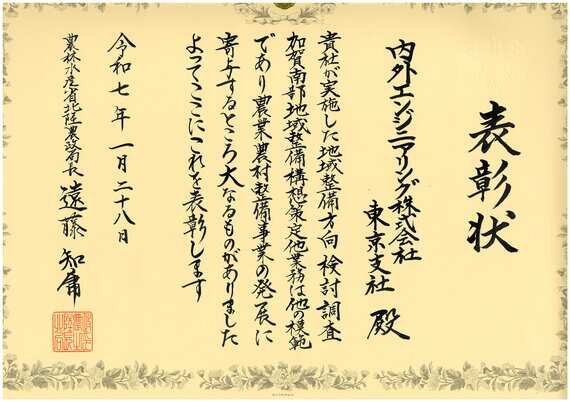 表彰状
内外エンジニアリング株式会社
東京支社 殿
貴社が実施した地域整備方向検討調査
加賀南部地域整備構想策定他業務は他の模範
であり農業農村整備事業の発展に
寄与するところ大なるものがありました
よってここにこれを表彰します
令和七年一月二十八日
農林水産省北陸農政局長 遠藤知庸